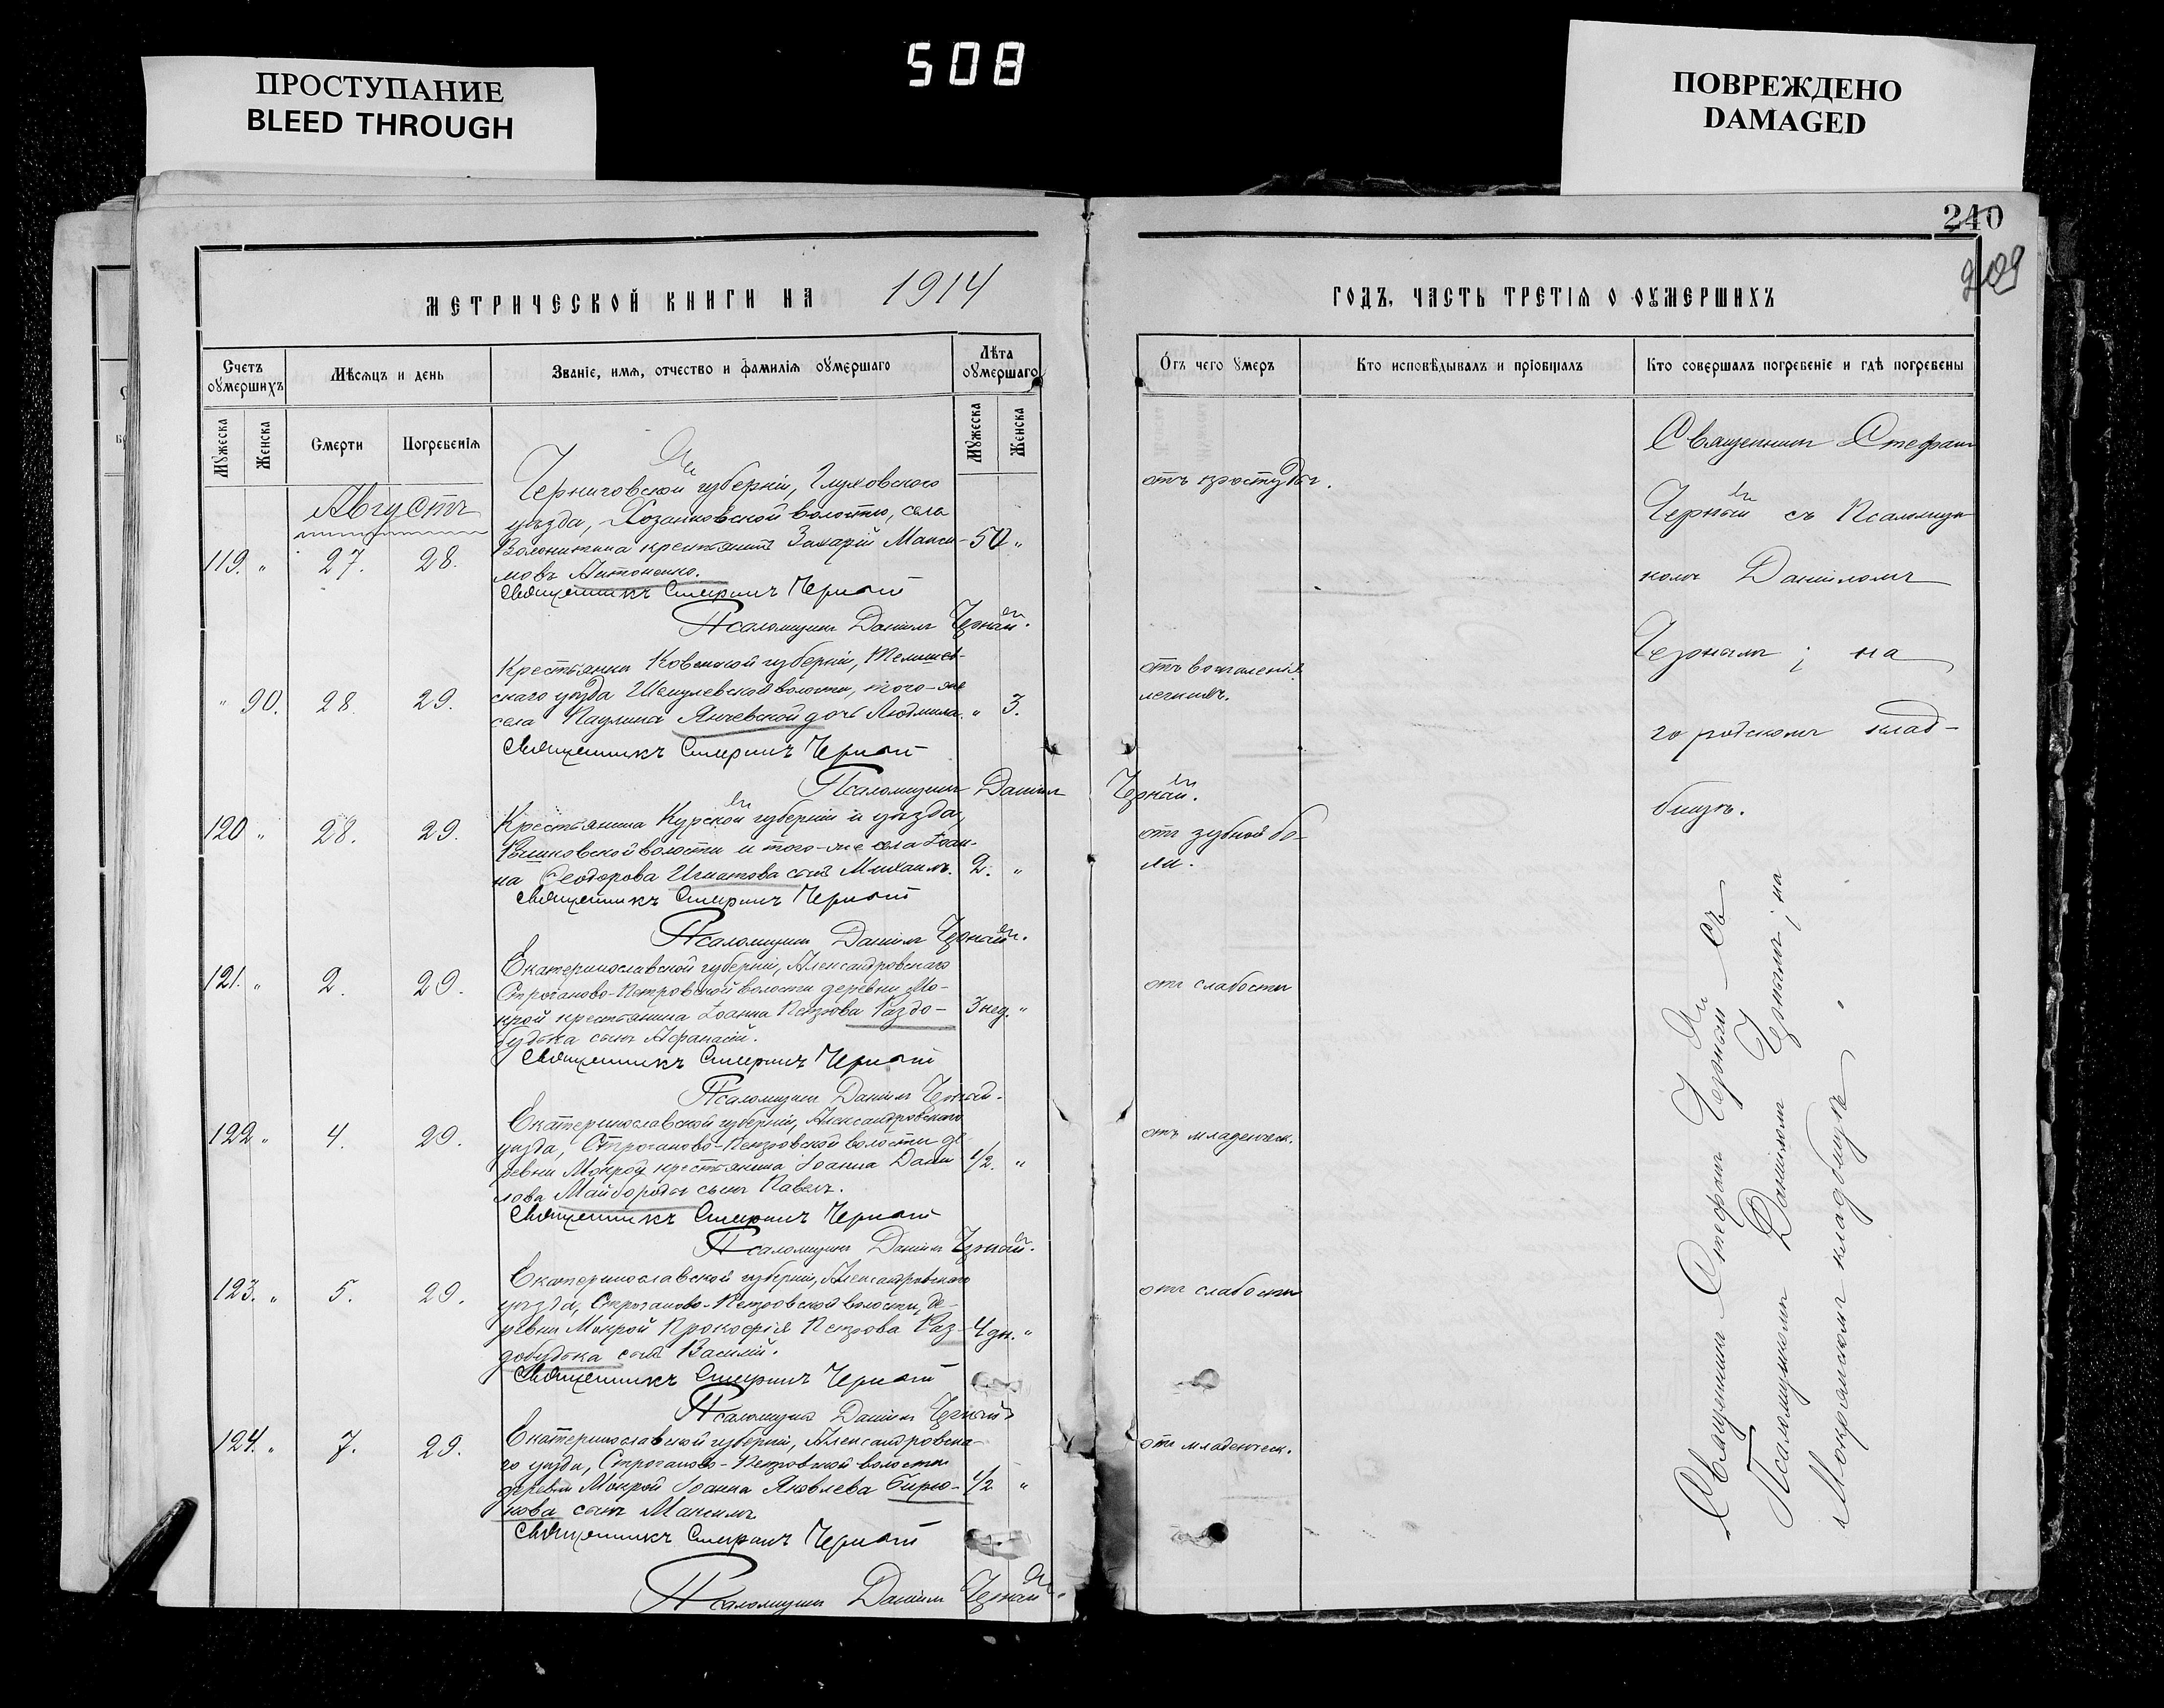 508
ПРОСТУПАНИЕ
BLEED THROUGH
ПОВРЕЖДЕНО
DAMAGED
240
209
МЕТРИЧЕСКОЙ КНИГИ НА 1914
ГОДЪ, ЧАСТЬ ТРЕТІЯ О ОУМЕРШИХЪ
Счетъ оумершихъ
Мѣсяцъ и день
Званіе, имя, отчество и фамилія оумершаго
Лѣта оумершаго
Отъ чего умеръ
Кто исповѣдывалъ и пріобщалъ
Кто совершалъ погребеніе и гдѣ погребены
Мужеска
Женска
Смерти
Погребенія
Мужеска
Женска
Августъ
Черниговской губерніи, Глуховского
уѣзда, волости, села
119. " 27. 28. крестьянинъ Захарій Макси- 50 "
мовъ Антоненко.
отъ простуды.
Священникъ Стефанъ Черный
Псаломщикъ Даніилъ Черный.
Крестьянина Ковенской губерніи, Тельшев-
скаго уѣзда волости, того-же
" 90. 28 29. села Паулина Янчевской дочь Людмила. " 3.
отъ воспаленія
легкихъ.
Священникъ Стефанъ Черный
Псаломщикъ Даніилъ Черный.
120 " 28. 29. Крестьянина Курской губерніи и уѣзда,
волости и того-же села Іоан-
на Феодорова Игнатова сынъ Михаилъ. 2. "
отъ зубной бо-
ли.
Священникъ Стефанъ Черный
Псаломщикъ Даніилъ Черный.
121. " 2. 29. Екатеринославской губерніи, Александровскаго
Строганово-Петровской волости деревни Мо-
крой крестьянина Іоанна Петрова Раздо- 3 нед. "
будька сынъ Афанасій.
отъ слабости
Священникъ Стефанъ Черный
Псаломщикъ Даніилъ Черный.
Екатеринославской губерніи, Александровскаго
122 " 4. 29. уѣзда, Строганово-Петровской волости де
ревни Мокрой крестьянина Іоанна Дани 1/2. "
лова Майбороды сынъ Павелъ.
отъ младенческ.
Священникъ Стефанъ Черный
Псаломщикъ Даніилъ Черный.
Екатеринославской губерніи, Александровскаго
123. " 5. 29. уѣзда, Строганово-Петровской волости, де-
ревни Мокрой Прокофія Петрова Раз- 4 дн. "
добудька сынъ Василій.
отъ слабости
Священникъ Стефанъ Черный
Псаломщикъ Даніилъ Черный
124. " 7. 29. Екатеринославской губерніи, Александровска-
го уѣзда, Строганово-Петровской волости
деревни Мокрой Іоанна Яковлева Бирю- 1/2 "
кова сынъ Максимъ
отъ младенческ.
Священникъ Стефанъ Черный
Псаломщикъ Даніилъ Черный.
Священникъ Стефанъ
Черный съ Псаломщи
комъ Даніиломъ
Чернымъ; на
городскомъ клад-
бищѣ.
Священникъ Стефанъ Черный съ
Псаломщикомъ Даніиломъ Чернымъ; на
Мокрянскомъ кладбищѣ "